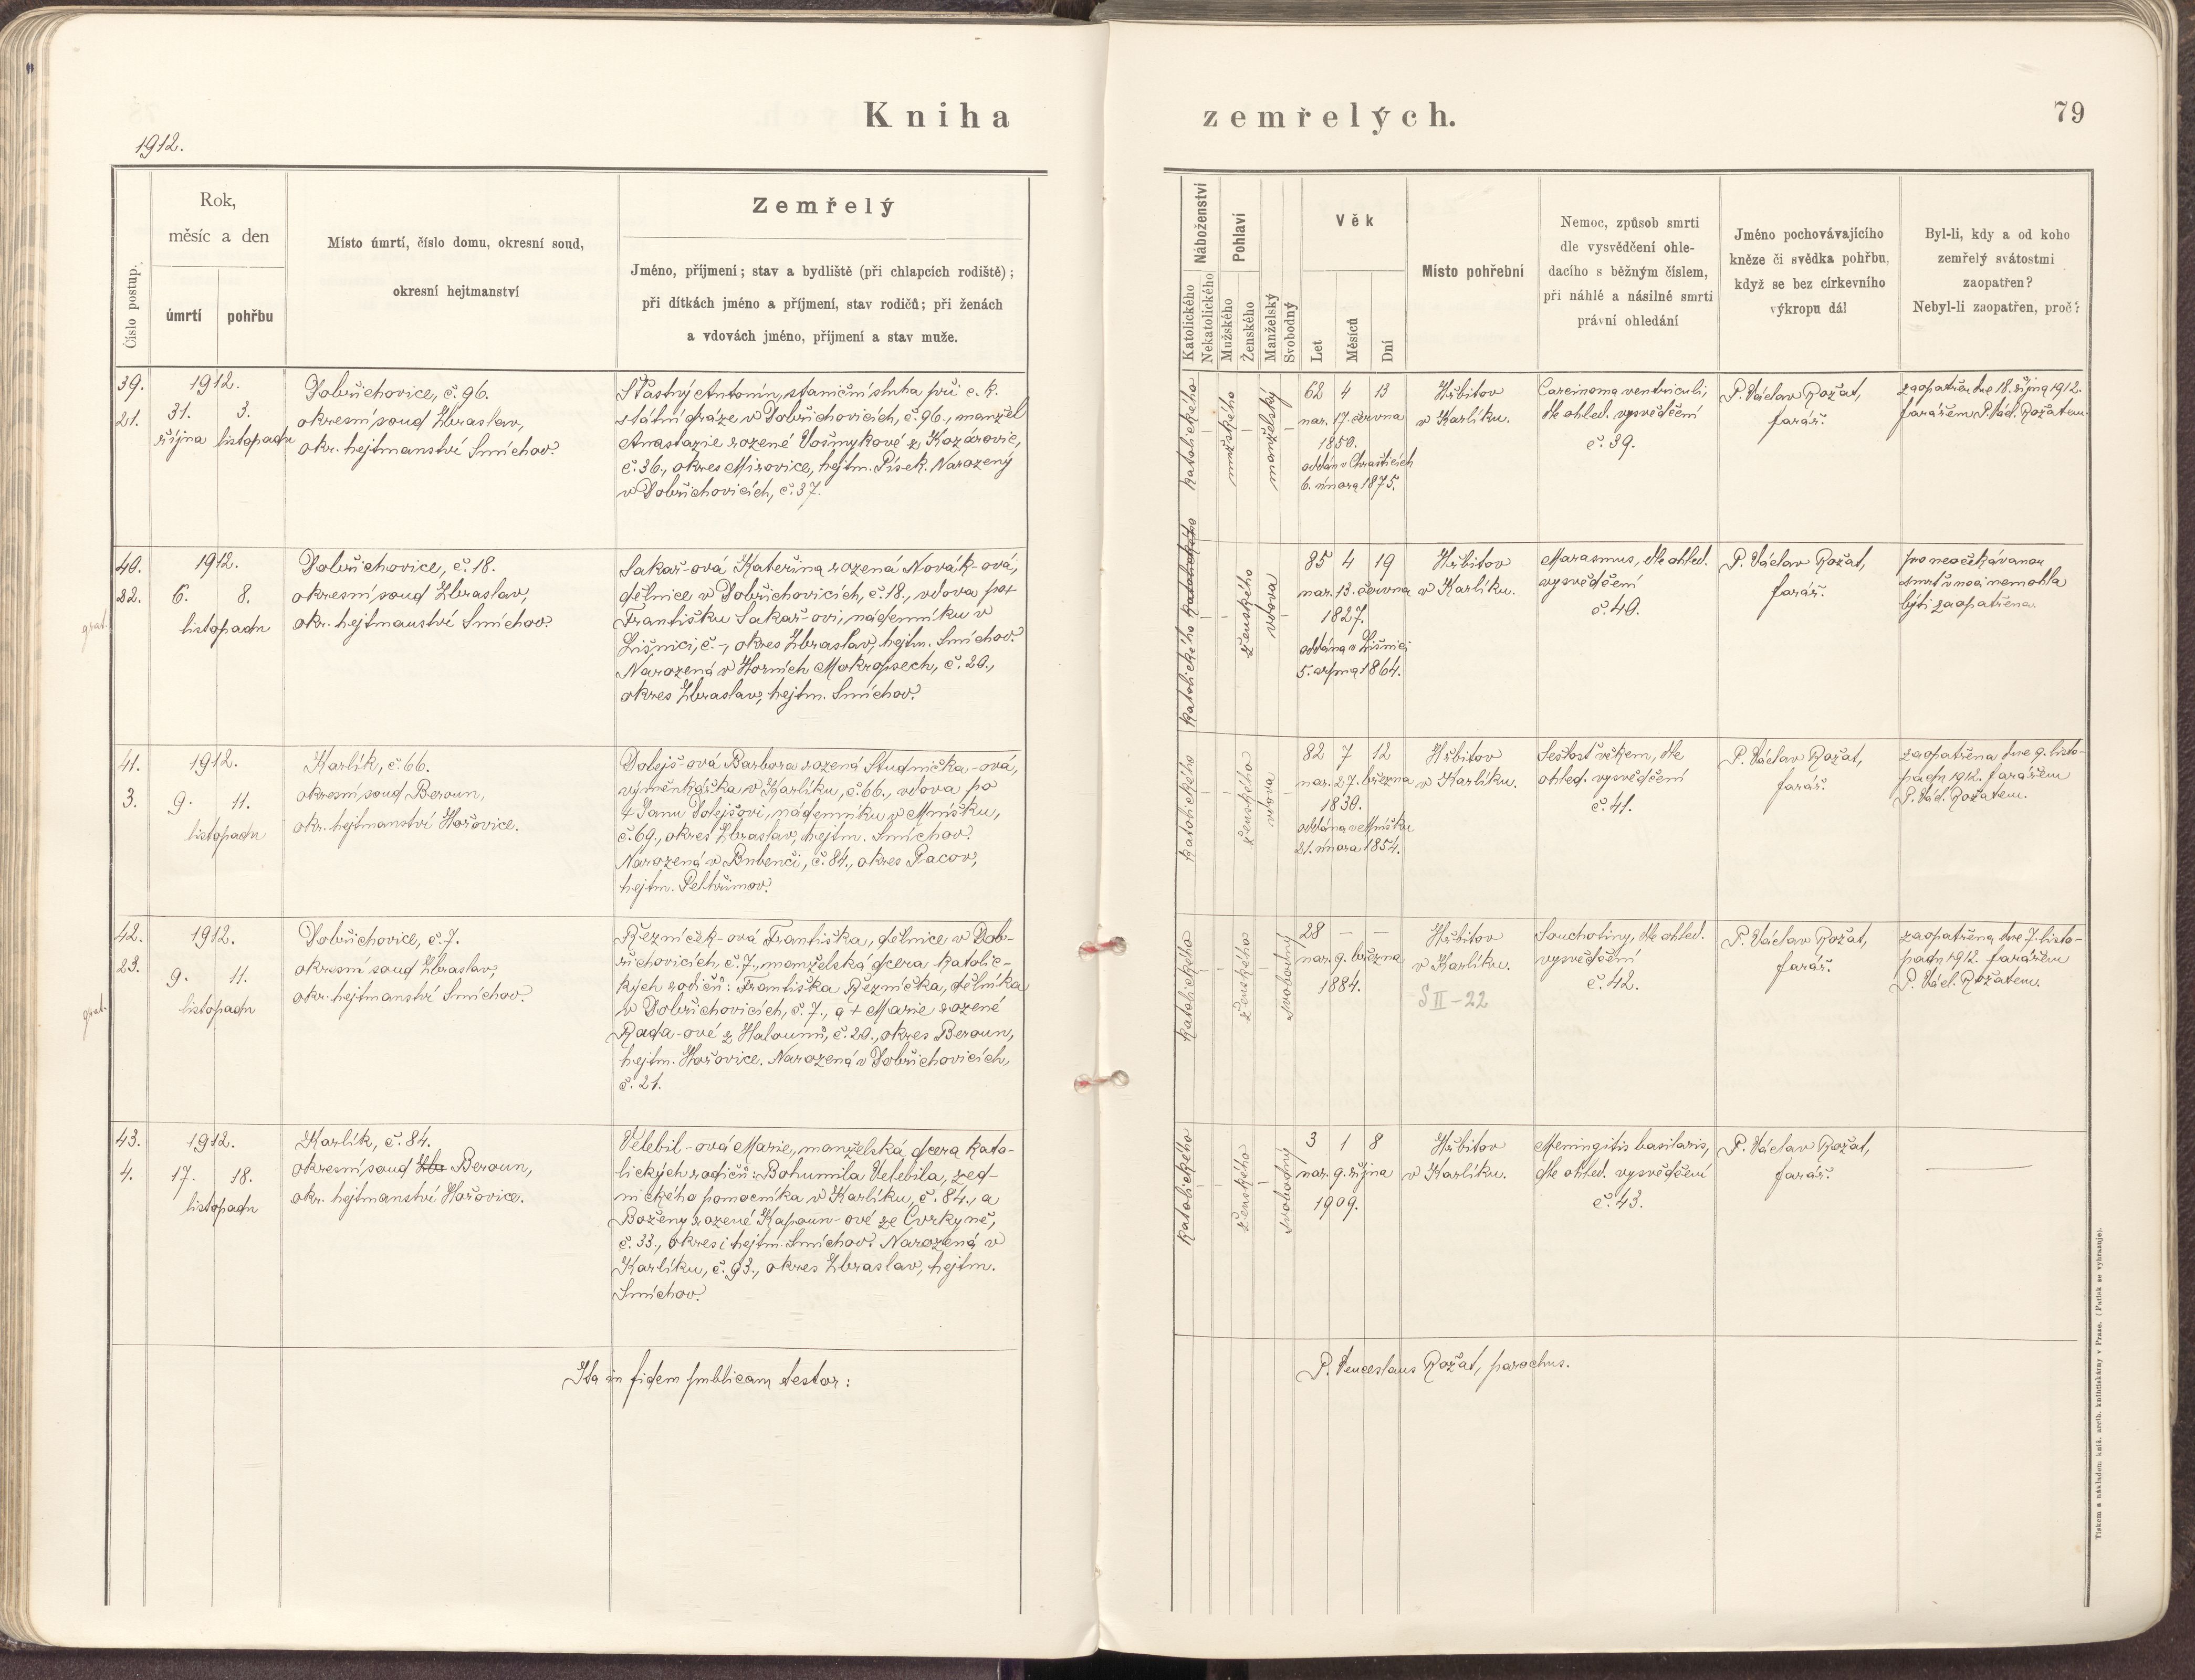 Kniha zemřelých.
79
1912.
Číslo postup.
Rok,
měsíc a den
úmrtí
pohřbu
Místo úmrtí, číslo domu, okresní soud,
okresní hejtmanství
Zemřelý
Jméno, příjmení; stav a bydliště (při chlapcích rodiště);
při dítkách jméno a příjmení, stav rodičů; při ženách
a vdovách jméno, příjmení a stav muže.
Náboženství
Katolického
Nekatolického
Pohlaví
Mužského
Ženského
Manželský
Svobodný
Věk
Let
Měsíců
Dní
Místo pohřební
Nemoc, způsob smrti
dle vysvědčení ohle-
dacího s běžným číslem,
při náhlé a násilné smrti
právní ohledání
Jméno pochovávajícího
kněze či svědka pohřbu,
když se bez církevního
výkropu dál
Byl-li, kdy a od koho
zemřelý svátostmi
zaopatřen?
Nebyl-li zaopatřen, proč?
39.
21.
1912.
31. 3.
října listopadu
Dobřichovice, č. 96.
okresní soud Zbraslav,
okr. hejtmanství Smíchov.
Šťastný Antonín, staniční sluha při c. k.
státní dráze v Dobřichovicích, č. 96., manžel
Anastazie rozené Vošmykové z Kozárovic,
č. 36., okres Mirovice, hejtm. Písek. Narozený
v Dobřichovicích, č. 37.
katolického
–
mužského
–
manželský
–
62 4 13
nar. 17. června
1850.
oddán v Chrašticích
6. února 1875.
Hřbitov
v Karlíku.
Carcinoma ventriculi,
dle ohled. vysvědčení
č. 39.
P. Václav Rožat,
farář.
zaopatřen dne 18. října 1912.
farářem P. Václ. Rožatem.
40.
22.
grat.
1912.
6. 8.
listopadu
Dobřichovice, č. 18.
okresní soud Zbraslav,
okr. hejtmanství Smíchov.
Sakař-ová Kateřina rozená Novák-ová,
dělnice v Dobřichovicích, č. 18., vdova po +
Františku Sakař-ovi, nádenníku v
Líšnici, č. -, okres Zbraslav, hejtm. Smíchov.
Narozená v Horních Mokropsech, č. 20.,
okres Zbraslav, hejtm. Smíchov.
katolického katolického
–
–
ženského
vdova
–
85 4 19
nar. 13. června
1827.
oddána v Líšnici
5. srpna 1864.
Hřbitov
v Karlíku.
Marasmus, dle ohled.
vysvědčení
č. 40.
P. Václav Rožat,
farář.
pro neočekávanou
smrt v noci nemohla
býti zaopatřena.
41.
3.
1912.
9. 11.
listopadu
Karlík, č. 66.
okresní soud Beroun,
okr. hejtmanství Hořovice.
Dolejš-ová Barbora rozená Studnička-ová,
výměnkářka v Karlíku, č. 66., vdova po
+ Janu Dolejšovi, nádenníku v Mníšku,
č. 69., okres Zbraslav, hejtm. Smíchov.
Narozená v Bubenči, č. 84., okres Pacov,
hejtm. Pelhřimov.
katolického
–
–
ženského
vdova
–
82 7 12
nar. 27. března
1830.
oddána ve Mníšku
21. února 1854.
Hřbitov
v Karlíku.
Sešlost věkem, dle
ohled. vysvědčení
č. 41.
P. Václav Rožat,
farář.
zaopatřena dne 9. listo-
padu 1912. farářem
P. Václ. Rožatem.
42.
23.
grat.
1912.
9. 11.
listopadu
Dobřichovice, č. 7.
okresní soud Zbraslav,
okr. hejtmanství Smíchov.
Řezníček-ová Františka, dělnice v Dob-
řichovicích, č. 7., manželská dcera katolic-
kých rodičů: Františka Řezníčka, dělníka
v Dobřichovicích, č. 7., a + Marie rozené
Rada-ové z Halounů, č. 20., okres Beroun,
hejtm. Hořovice. Narozená v Dobřichovicích,
č. 21.
katolického
–
–
ženského
–
svobodný
28 – –
nar. 9. března
1884.
Hřbitov
v Karlíku.
S II - 22
Souchotiny, dle ohled.
vysvědčení
č. 42.
P. Václav Rožat,
farář.
zaopatřena dne 7. listo-
padu 1912. farářem
P. Václ. Rožatem.
43.
4.
1912.
17. 18.
listopadu
Karlík, č. 84.
okresní soud Zbr Beroun,
okr. hejtmanství Hořovice.
Velebil-ová Marie, manželská dcera kato-
lických rodičů: Bohumila Velebila, zed-
nického pomocníka v Karlíku, č. 84., a
Boženy rozené Kapoun-ové ze Cvrkyně,
č. 33., okres i hejtm. Smíchov. Narozená v
Karlíku, č. 93., okres Zbraslav, hejtm.
Smíchov.
katolického
–
–
ženského
–
svobodný
3 1 8
nar. 9. října
1909.
Hřbitov
v Karlíku.
Meningitis basilaris,
dle ohled. vysvědčení
č. 43.
P. Václav Rožat,
farář.
–
Ita in fidem publicam testor:
P. Venceslaus Rožat, parochus.
Tiskem a nákladem kníž. arcib. knihtiskárny v Praze. (Patisk se vyhrazuje).